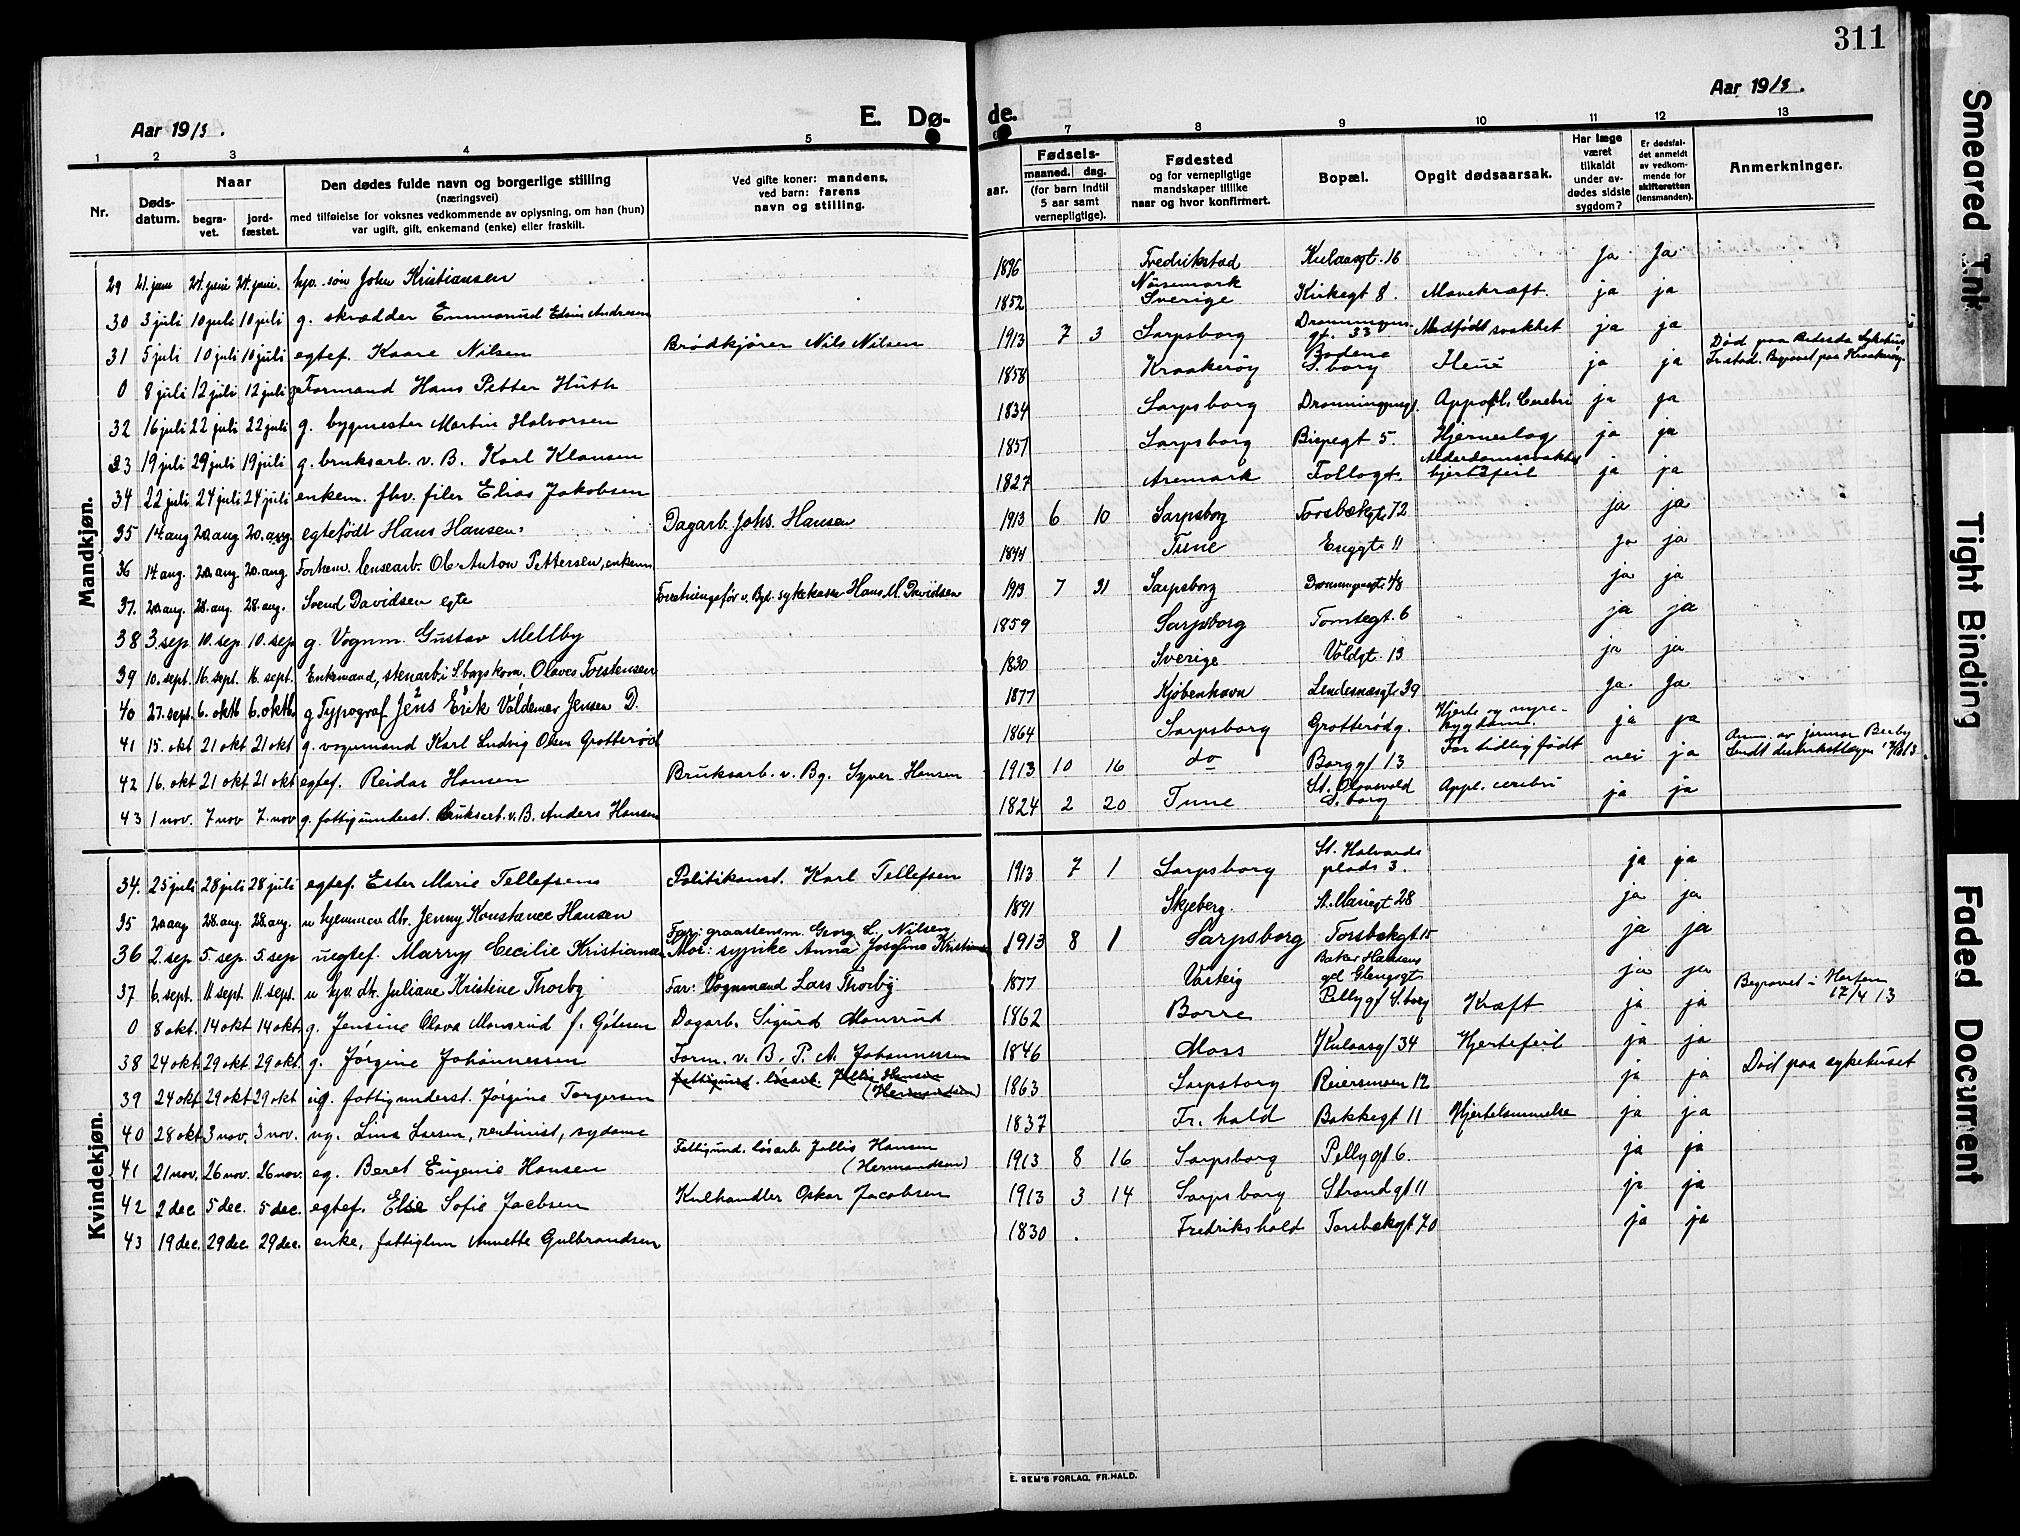 311
Aar 1913.
E. Dø-
de.
Aar 1913.
1 2 3 4 5
7 8 9 10 11 12 13
Nr.
Døds-
datum.
Naar
begra-
vet.
jord-
fæstet.
Den dødes fulde navn og borgerlige stilling
(næringsvei)
med tilføielse for voksnes vedkommende av oplysning, om han (hun)
var ugift, gift, enkemand (enke) eller fraskilt.
Ved gifte koner: mandens,
ved barn: farens
navn og stilling.
aar.
Fødsels-
maaned. dag.
(for barn indtil
5 aar samt
vernepligtige).
Fødested
og for vernepligtige
mandskaper tillike
naar og hvor konfirmert.
Bopæl.
Opgit dødsaarsak.
Har læge
været
tilkaldt
under av-
dødes sidste
sygdom?
Er dødsfal-
det anmeldt
av vedkom-
mende for
skifteretten
(lensmanden).
Anmerkninger.
Mandkjøn.
29 21. juni 24. juni 24. juni. hjv. søn John Kristiansen 1896 Fredrikstad Kulaasgt. 16 Ja Ja
30 3 juli 10 juli 10 juli g. skrædder Emmanuel Edvin Andresen 1852 Nössemark Sverige Kirkegt 8. Mavekræft. ja ja
31 5 juli 10 juli 10 juli egtef. Kaare Nilsen Brödkjörer Nils Nilsen 1913 7 3 Sarpsborg Dronningens gt. 33 Medfödt svakhet ja ja
0 8 juli 12 juli 12 juli g. Formand Hans Petter Huth 1858 Kraakeröy Bodene S.borg ja ja Död paa Betesda Sykehus Fr.stad. Begravet paa Kraakeröy.
32 16 juli 22 juli 22 juli g. bygmester Martin Halvorsen 1834 Sarpsborg Dronningensgt. Appopl. Cerebri ja ja
33 19 juli 29 juli 19 juli g. bruksarb. v. B. Karl Klausen 1851 Sarpsborg Bispegt 5. Hjerneslag ja ja
34 22 juli 24 juli 24 juli enkem. fhv. filer Elias Jakobsen 1827 Aremark Follogt. Alderdomssvakhet hjertefeil ja ja
35 14 aug 20. aug 20. aug egtefödt Hans Hansen. Dagarb. Johs. Hansen 1913 6 10 Sarpsborg Torsbækgt. 72 ja ja
36 14 aug. 20. aug 20. aug. Forhenv. lensearb. Ole Anton Pettersen, enkem 1844 Tune Enggt. 11 ja ja
37. 20. aug. 28. aug. 28. aug. Svend Davidsen egte Forretningsför. v. Byt. sykekasse Hans M. Davidsen 1913 7 31 Sarpsborg Dronningensgt. 48 ja ja
38 3. sep 10. sep. 10. sep g. Vognm. Gustav Mellby 1859 Sarpsborg Tomtegt. 6 ja ja
39 10. sept. 16. sept. 16. sept. Enkemand, stenarb. i S.borgs kom. Olaves Torstensen 1830 Sverige Voldgt. 13 ja ja
40 27. sept. 6. oktb 6. oktb. g Typograf Jens Erik Valdemar Jensen D. 1877 Kjöbenhavn Lendesnæsgt. 39 ja. ja
41 15. okt 21 okt 21 okt g. vognmand Karl Ludvig Olsen Grotteröd 1864 Sarpsborg Grotterödg. Hjerte og nyre- sygdom. ja ja
42 16. okt 21 okt 21 okt egtef. Reidar Hansen Bruksarb. v. Bg. Syver Hansen 1913 10 16 do Borggt 13 For tidlig födt nei ja Anm. av jormor Berby Sendt distriktslægen
43 1 nov. 7 nov 7. nov g. fattigunderst. Bruksarb. v. B. Anders Hansen 1824 2 20 Tune St. Olavsvold S. borg Appl. cerebri ja ja
Kvindekjøn.
34. 25 juli 28 juli 28 juli egtef. Ester Marie Tellefsen Politikonst. Karl Tellefsen 1913 7 1 Sarpsborg St. Halvards plads 3. ja ja
35 20. aug 28. aug. 28. aug. u hjemmev. dtr. Jenny Konstance Hansen 1891 Skjeberg. St. Mariegt 28 ja ja
36 2. sep 5. sep. 5. sep uegtef. Marry Cecilie Kristiansen Far: graastensm. Georg L. Nilsen Mor: sypike Anna Josefine Kristiansen 1913 8 1 Sarpsborg Torsbekgt. 15 ja ja
37 6. sept. 11. sept. 11. sept. u hjv. dtr. Juliane Kristine Thorby Far: Vognmand Lars Thorby. 1877 Varteig Baker Hansens gd Glengsgt. ja ja
0 8 okt. 14 okt 14 okt. g. Jensine Olava Monsrud f. Götesen Dagarb. Sigurd Monsrud 1862 Borre Pellygt S.borg Kræft ja ja Begravet i Horten 17/4 13
38 24 okt 29 okt. 29 okt. g. Jörgine Johannessen Form. v. B. P. A. Johannessen 1846 Moss Kulaasgt 34 Hjertefeil ja ja
39 24 okt. 29 okt 29 okt ug. fattigunderst. Jörgine Torgersen Fattigund. lösarb. Jallis Hansen (Hermandsen) 1863 Sarpsborg Reiersmoen 12 ja ja Död paa sykehuset
40 28 okt 3 nov. 3 nov. ug. Lina Larsen, rentenist, sydame 1837 Fr. hald Bakkegt 11 Hjertelammelse ja ja
41 21 nov. 26 nov. 26 nov. eg. Beret Eugenie Hansen Fattigund. lösarb Jallis Hansen (Hermandsen) 1913 8 16 Sarpsborg Pellygt 6. ja ja
42 2 dec 5 dec. 5 dec. egtef. Else Sofie Jacobsen Kulhandler Oskar Jacobsen 1913 3 14 Sarpsborg Strandgt 11 ja ja
43 19 dec. 29 dec. 29 dec. enke, fattiglem Annette Gulbrandsen 1830 Fredrikshald Torsbekgt 70 ja ja
E. SEM'S FORLAG, FR.HALD.
Smeared Ink
Tight Binding
Faded Document